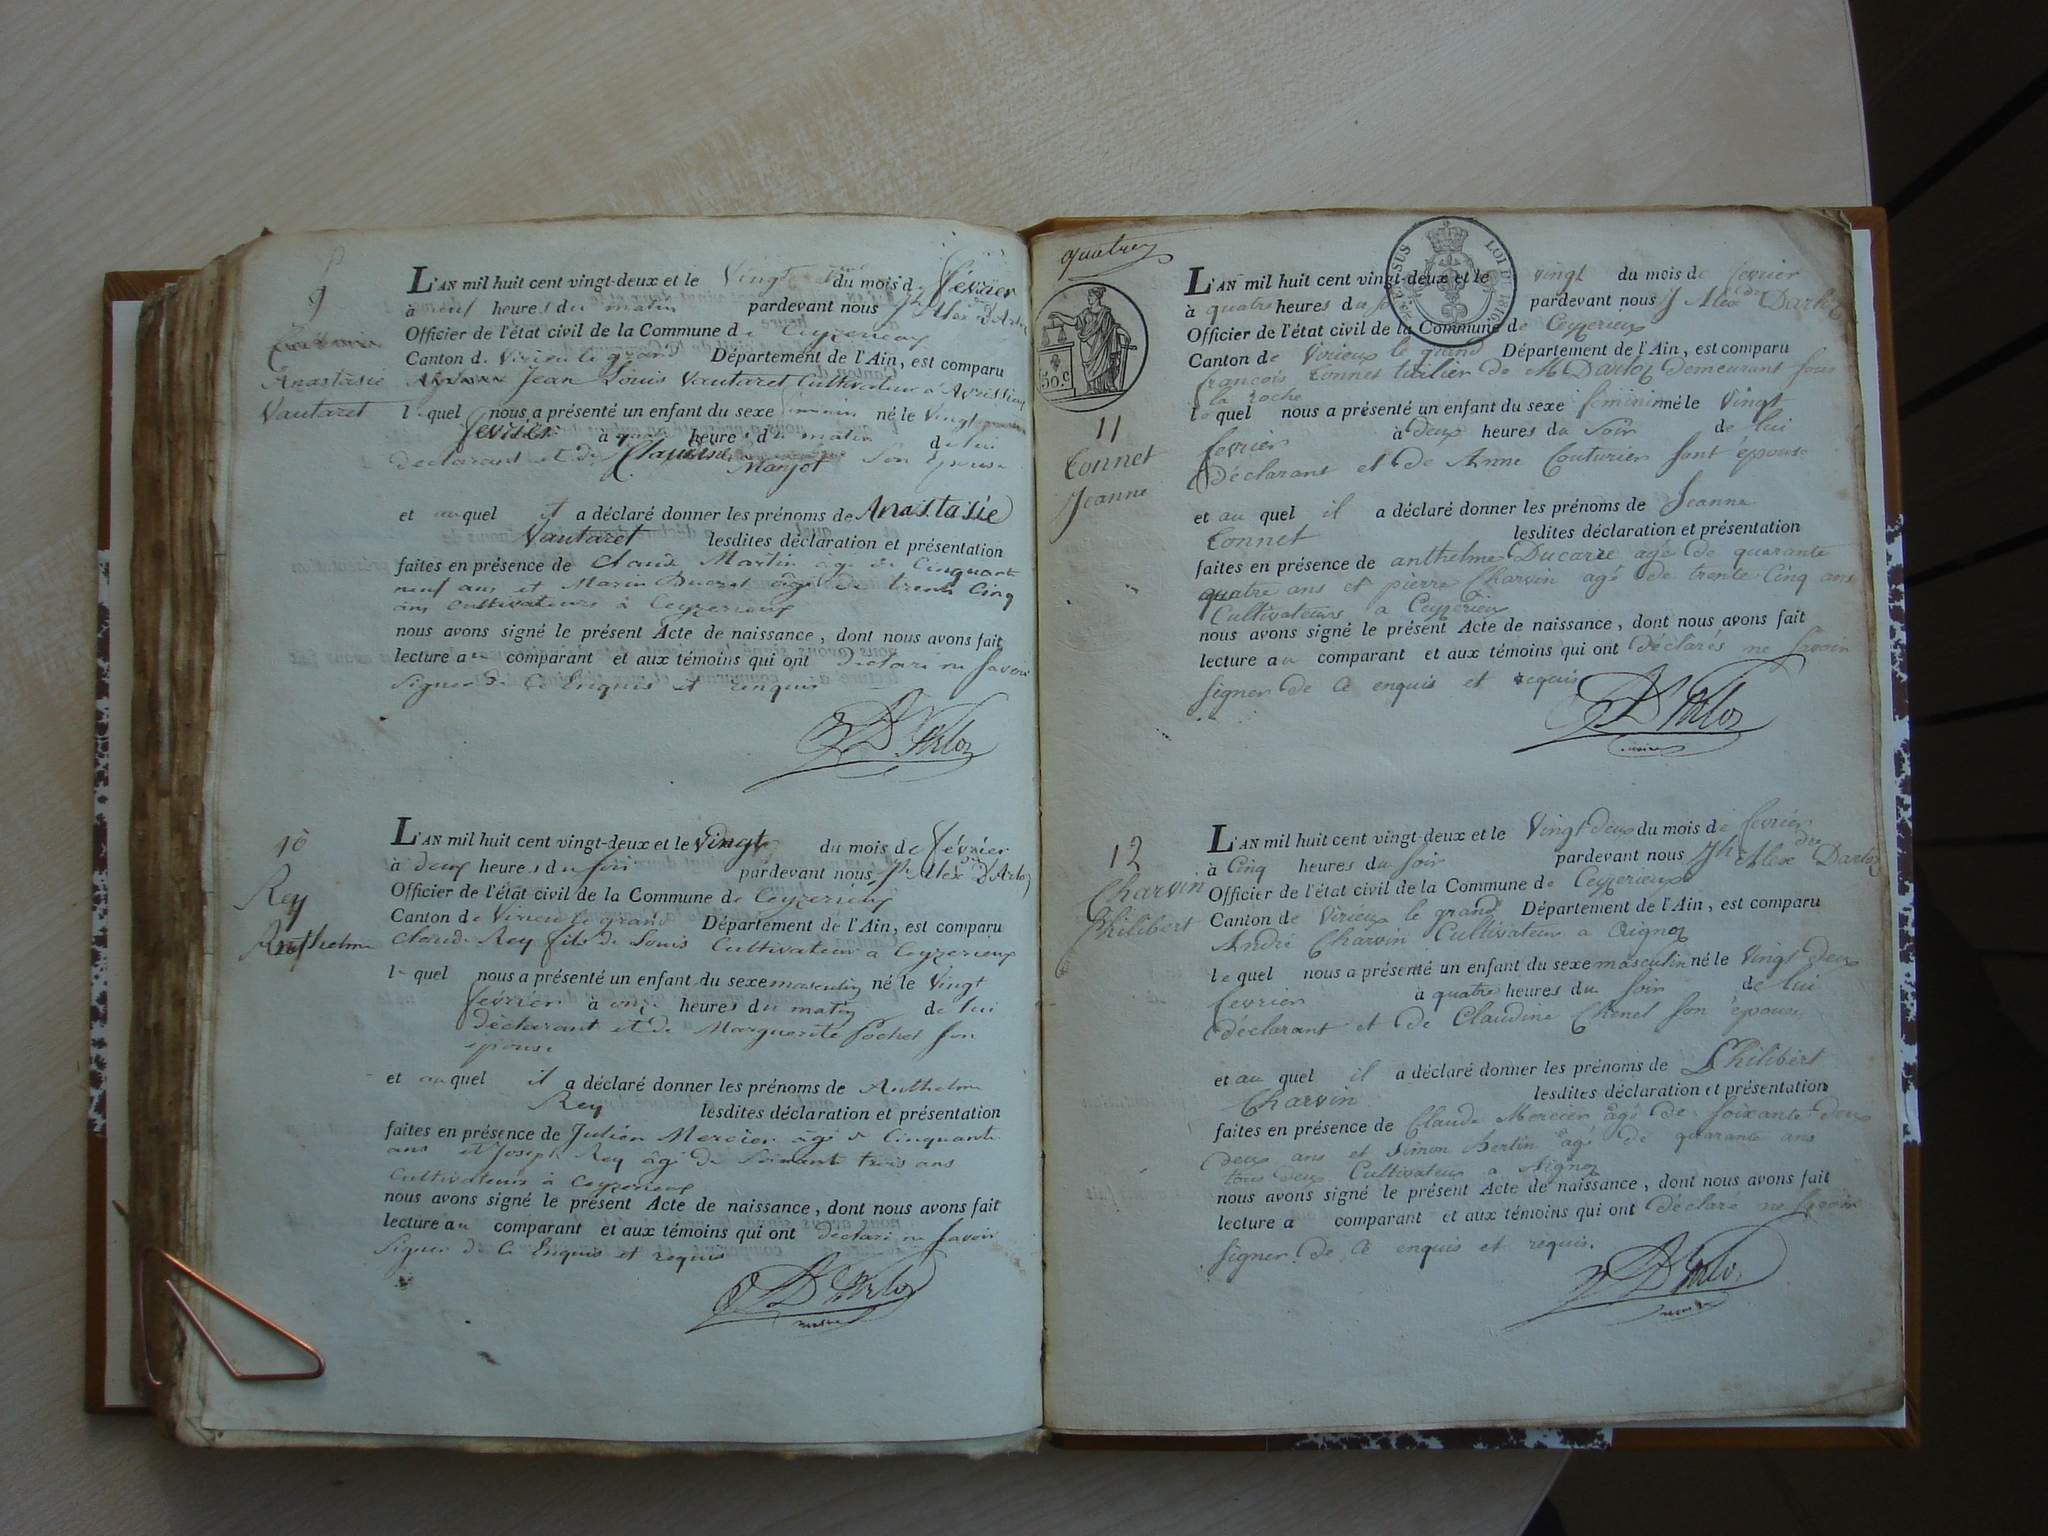 9
Anastasie
Vautaret
L'AN mil huit cent vingt-deux et le Vingt du mois de février
à neuf heures du matin pardevant nous Jh Alexdre D'Arloz
Officier de l'état civil de la Commune de Ceyzerieux
Canton de Virieu le grand Département de l'Ain, est comparu
Jean Louis Vautaret Cultivateur à Avrissieu
lequel nous a présenté un enfant du sexe féminin né le Vingt
fevrier à heures du matin de lui
declarant et de Claudine Manjot son épouse
et auquel il a déclaré donner les prénoms de Anastasie
Vautaret lesdites déclaration et présentation
faites en présence de Claude Martin agé de Cinquante
neuf ans et Marin Ducret âgé de trente Cinq
ans Cultivateurs à Ceyzerieux
nous avons signé le présent Acte de naissance, dont nous avons fait
lecture au comparant et aux témoins qui ont declaré ne savoir
signer de Ce Enquis et requis
D'Arloz
10
Rey
Anthelme
L'AN mil huit cent vingt-deux et le Vingt du mois de février
à deux heures du soir pardevant nous Jh Alexdre D'Arloz
Officier de l'état civil de la Commune de Ceyzerieux
Canton de Virieu le grand Département de l'Ain, est comparu
Claude Rey fils de Louis Cultivateur à Ceyzerieux
lequel nous a présenté un enfant du sexe masculin né le Vingt
février à onze heures du matin de lui
déclarant et de Marguerite Pochet son
epouse
et auquel il a déclaré donner les prénoms de Anthelme
Rey lesdites déclaration et présentation
faites en présence de Julien Mercier âgé de Cinquante
ans et Joseph Rey âgé de Soixante trois ans
Cultivateurs à Ceyzerieux
nous avons signé le présent Acte de naissance, dont nous avons fait
lecture au comparant et aux témoins qui ont declaré ne savoir
signer de Ce Enquis et requis
D'Arloz
maire
quatre
50.C
LOI DE 1816
11
Tonnet
Jeanne
L'AN mil huit cent vingt-deux et le vingt du mois de fevrier
à quatre heures du soir pardevant nous J Alexdre Darloz
Officier de l'état civil de la Commune de Ceyzerieux
Canton de Virieux le grand Département de l'Ain, est comparu
françois Tonnet tuilier de Mr Darloz demeurant sous
la roche
lequel nous a présenté un enfant du sexe feminin né le Vingt
fevrier à deux heures du Soir de lui
déclarant et de Anne Couturier sont épouse
et au quel il a déclaré donner les prénoms de Jeanne
Tonnet lesdites déclaration et présentation
faites en présence de anthelme Ducarre agé de quarante
quatre ans et pierre Charvin agé de trente Cinq ans
Cultivateurs a Ceyzerieu
nous avons signé le présent Acte de naissance, dont nous avons fait
lecture au comparant et aux témoins qui ont Déclarés ne savoir
signer de Ce enquis et requis
D'Arloz
maire
12
Charvin
Philibert
L'AN mil huit cent vingt-deux et le Vingt deux du mois de fevrier
à Cinq heures du soir pardevant nous Jh Alexdre Darloz
Officier de l'état civil de la Commune de Ceyzerieux
Canton de Virieux le grand Département de l'Ain, est comparu
André Charvin Cultivateur a Aignoz
lequel nous a présenté un enfant du sexe masculin né le Vingt deux
fevrier à quatre heures du soir de lui
déclarant et de Claudine Chenel son épouse
et au quel il a déclaré donner les prénoms de Philibert
Charvin lesdites déclaration et présentation
faites en présence de Claude Mercier agé de soixante deux
deux ans et Simon Bertin agé de quarante ans
tous deux Cultivateurs a Aignoz
nous avons signé le présent Acte de naissance, dont nous avons fait
lecture a comparant et aux témoins qui ont Déclaré ne savoir
signer de Ce enquis et requis.
D'Arloz
maire